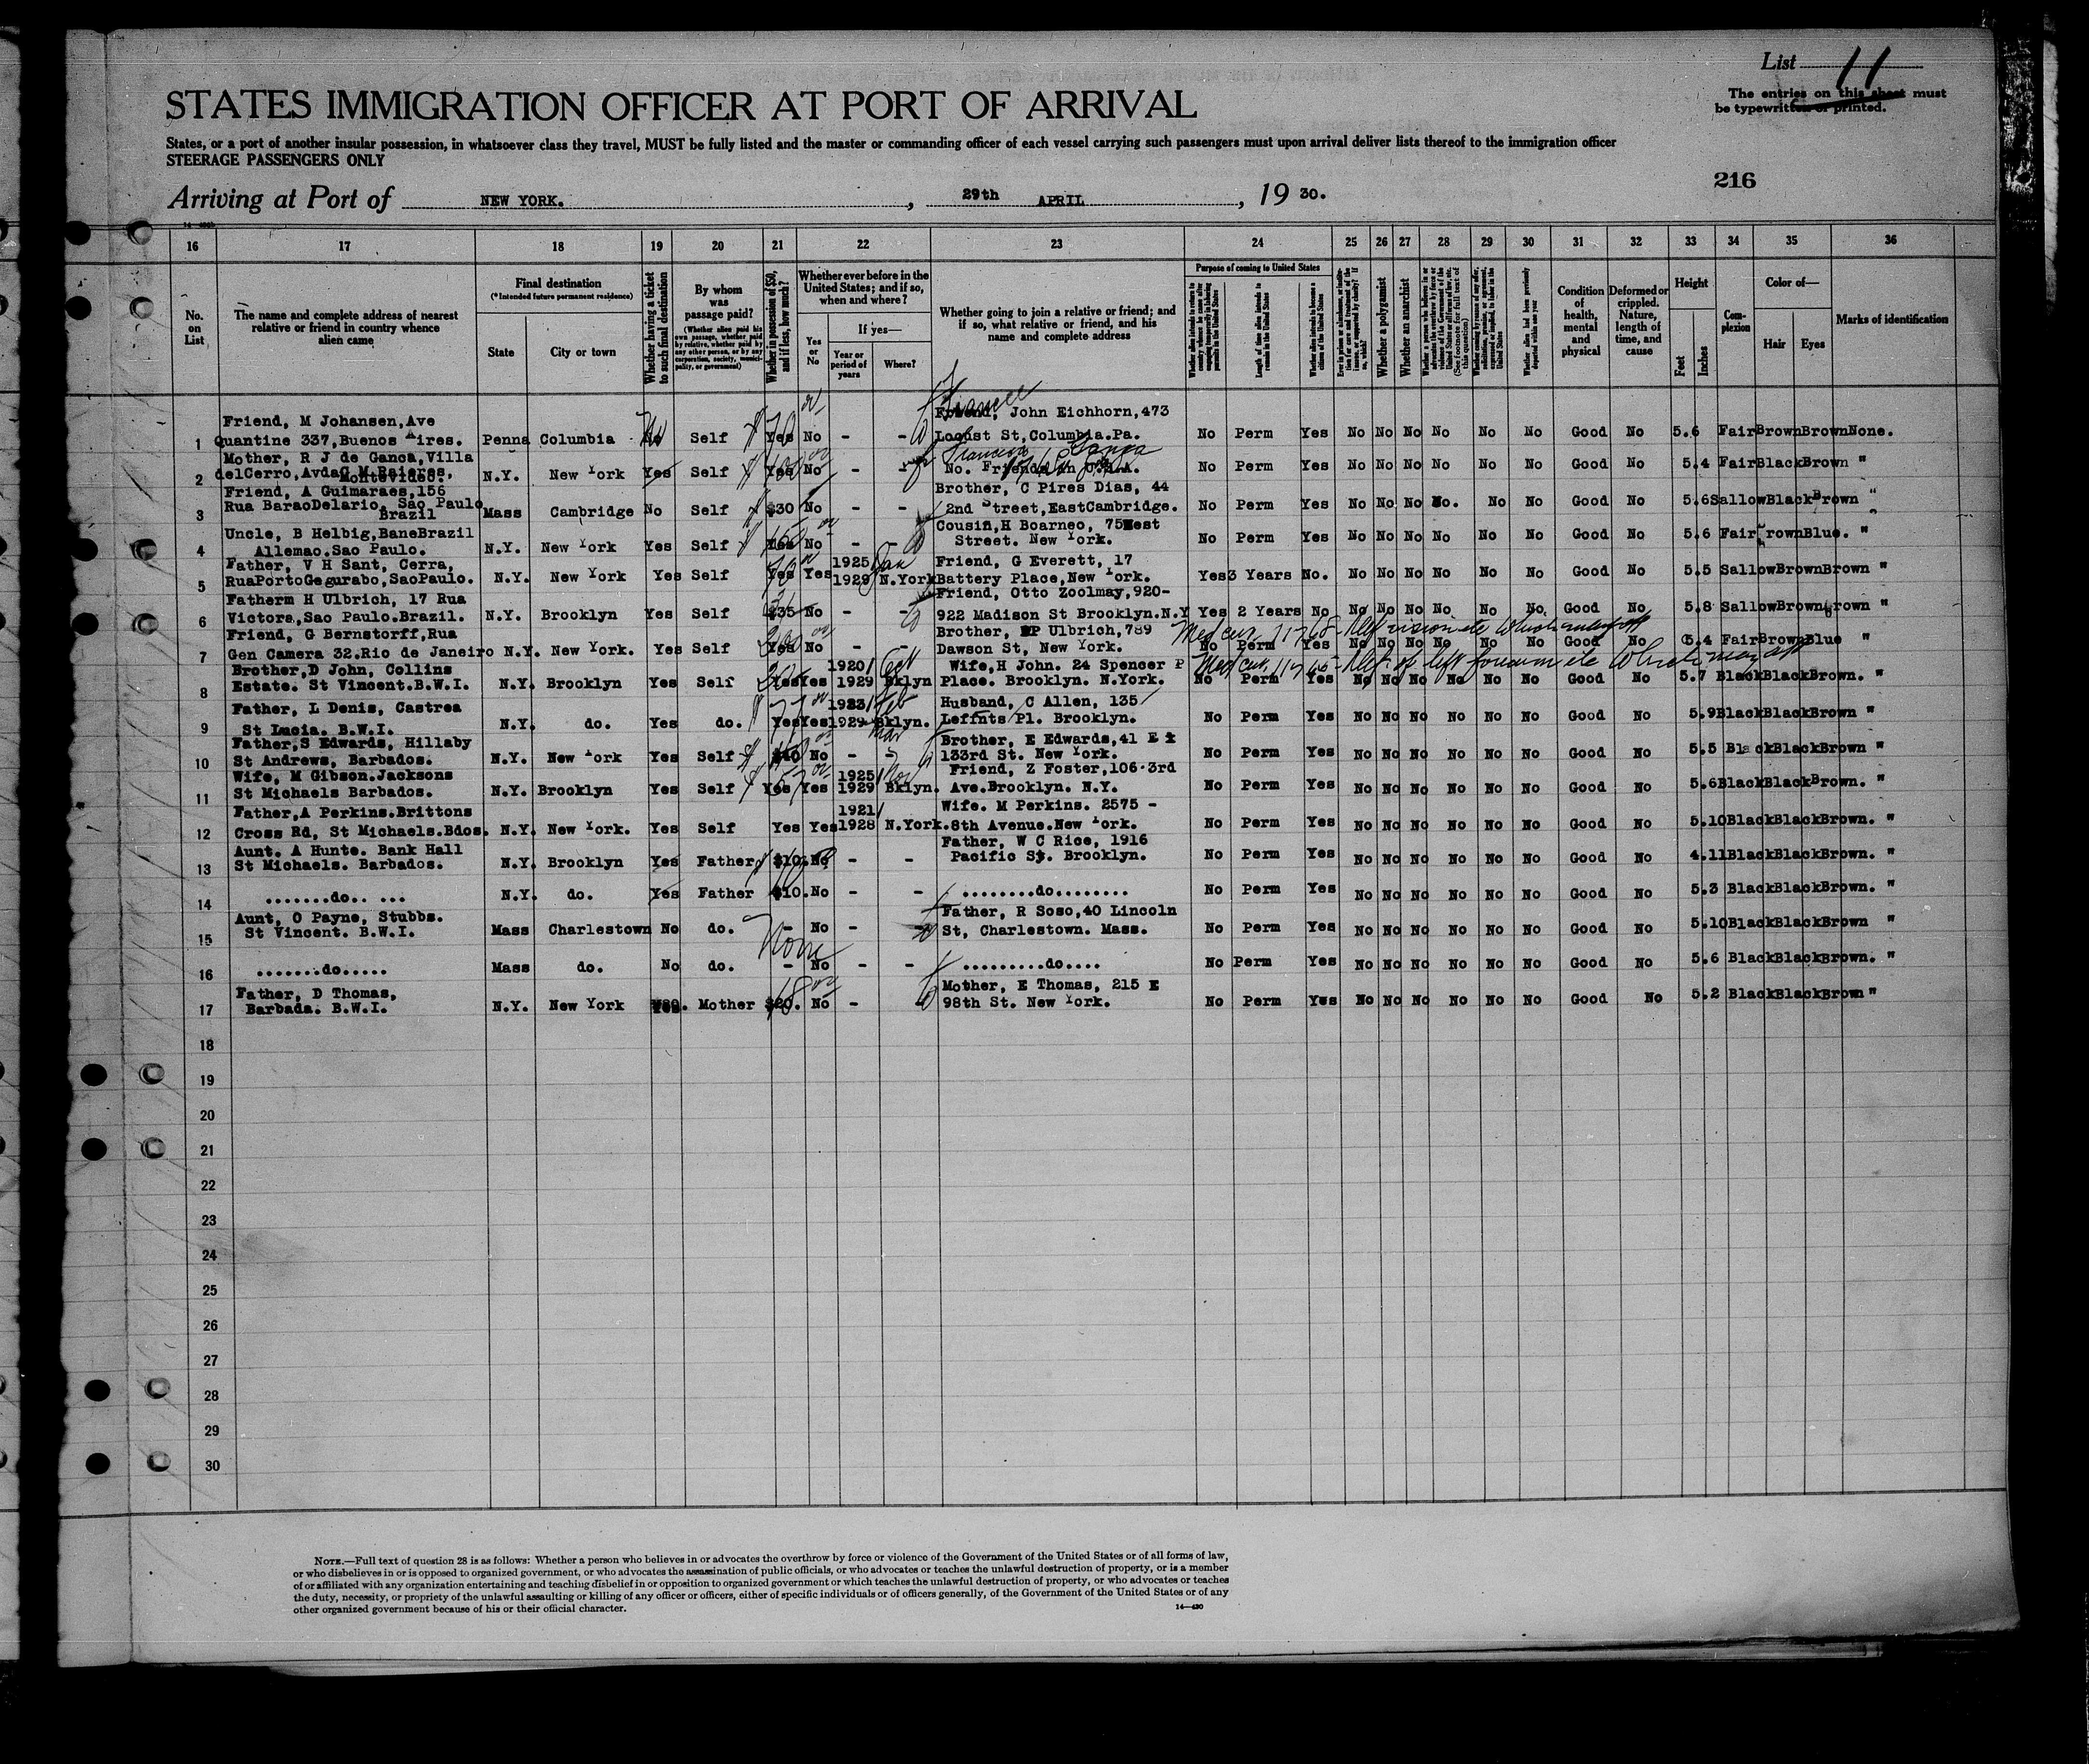 List 11
The entries on this sheet must
be typewritten or printed.
STATES IMMIGRATION OFFICER AT PORT OF ARRIVAL
States, or a port of another insular possession, in whatsoever class they travel, MUST be fully listed and the master or commanding officer of each vessel carrying such passengers must upon arrival deliver lists thereof to the immigration officer
STEERAGE PASSENGERS ONLY
216
Arriving at Port of NEW YORK. , 29th APRIL , 19 30.
16 17 18 19 20 21 22 23 24 25 26 27 28 29 30 31 32 33 34 35 36
No. on List
The name and complete address of nearest relative or friend in country whence alien came
Final destination
(*Intended future permanent residence)
State
City or town
Whether having a ticket to such final destination
By whom was passage paid?
Whether in possession of $50, and if less, how much?
Whether ever before in the United States; and if so, when and where?
Yes or No
If yes—
Year or period of years
Where?
Whether going to join a relative or friend; and if so, what relative or friend, and his name and complete address
Purpose of coming to United States
Whether a polygamist
Whether an anarchist
Condition of health, mental and physical
Deformed or crippled. Nature, length of time, and cause
Height
Feet
Inches
Complexion
Color of—
Hair
Eyes
Marks of identification
Friend, M Johansen,Ave John Eichhorn,473
1 Quantine 337,Buenos Aires. Penna Columbia Self Yes No - - Locust St,Columbia.Pa. No Perm Yes No No No No No No Good No 5.6 Fair Brown Brown None.
Mother, R J de Ganca,Villa
2 delCerro,Avda Montevideo. N.Y. New York Yes Self Yes No - - No. No Perm Yes No No No No No No Good No 5.4 Fair Black Brown "
Friend, A Guimaraes,156 Brother, C Pires Dias, 44
3 Rua BaraoDelario, Sao Paulo Brazil Mass Cambridge No Self $30 No - - 2nd Street,EastCambridge. No Perm Yes No No No No. No No Good No 5.6 Sallow Black Brown "
Uncle, B Helbig,BaneBrazil Cousin,H Boarneo, 75West
4 Allemao.Sao Paulo. N.Y. New York Yes Self Yes No - - Street. New York. No Perm Yes No No No No No No Good No 5.6 Fair Brown Blue. "
Father, V H Sant, Cerra, 1925/ Jan Friend, G Everett, 17
5 RuaPortoGegurabo,SaoPaulo. N.Y. New York Yes Self Yes Yes 1929 N.York Battery Place,New York. Yes 3 Years No. No No No No No No Good No 5.5 Sallow Brown Brown "
Fatherm H Ulbrich, 17 Rua Friend, Otto Zoolmay,920-
6 Victora,Sao Paulo.Brazil. N.Y. Brooklyn Yes Self $35 No - - 922 Madison St Brooklyn.N.Y Yes 2 Years No No No No No No No Good No 5.8 Sallow Brown Brown "
Friend, G Bernstorff,Rua Brother, P Ulbrich,789
7 Gen Camera 32.Rio de Janeiro N.Y. New York. Yes Self Yes No - - Dawson St, New York. No Perm Yes No No No No No No Good No 5.4 Fair Brown Blue "
Brother,D John, Collins 1920/ Oct Wife,H John. 24 Spencer P
8 Estate. St Vincent.B.W.I. N.Y. Brooklyn Yes Self Yes Yes 1929 Bklyn Place. Brooklyn. N.York. No Perm Yes No No No No No No Good No 5.7 Black Black Brown. "
Father, L Denis, Castrea 1923/ Feb Husband, C Allen, 135
9 St Lucia. B.W.I. N.Y. do. Yes do. Yes Yes 1929 Bklyn. Leffnts Pl. Brooklyn. No Perm Yes No No No No No No Good No 5.9 Black Black Brown "
Father,S Edwards, Hillaby Brother, E Edwards,41 E
10 St Andrews, Barbados. N.Y. New York Yes Self $40 No - 133rd St. New York. No Perm Yes No No No No No No Good No 5.5 Black Black Brown "
Wife, M Gibson.Jacksons 1925/ Friend, Z Foster,106-3rd
11 St Michaels Barbados. N.Y. Brooklyn Yes Self Yes Yes 1929 Bklyn. Ave.Brooklyn. N.Y. No Perm Yes No No No No No No Good No 5.6 Black Black Brown. "
Father,A Perkins.Brittons 1921/ Wife. M Perkins. 2575 -
12 Cross Rd, St Michaels.Bdos. N.Y. New York. Yes Self Yes Yes 1928 N.York. 8th Avenue.New York. No Perm Yes No No No No No No Good No 5.10 Black Black Brown. "
Aunt. A Hunte. Bank Hall Father, W C Rice, 1916
13 St Michaels. Barbados. N.Y. Brooklyn Yes Father $10. No - - Pacific St. Brooklyn. No Perm Yes No No No No No No Good No 4.11 Black Black Brown. "
14 .......do.. ... N.Y. do. Yes Father $10. No - - ........do........ No Perm Yes No No No No No No Good No 5.3 Black Black Brown. "
Aunt, O Payne, Stubbs. Father, R Soso,40 Lincoln
15 St Vincent. B.W.I. Mass Charlestown No do. - No - St, Charlestown. Mass. No Perm Yes No No No No No No Good No 5.10 Black Black Brown "
None
16 .......do..... Mass do. No do. - No - - .........do.... No Perm Yes No No No No No No Good No 5.6 Black Black Brown. "
Father, D Thomas, Mother, E Thomas, 215 E
17 Barbada. B.W.I. N.Y. New York Yes. Mother $20. No - 98th St. New York. No Perm Yes No No No No No No Good No 5.2 Black Black Brown "
18
19
20
21
22
23
24
25
26
27
28
29
30
NOTE.—Full text of question 28 is as follows: Whether a person who believes in or advocates the overthrow by force or violence of the Government of the United States or of all forms of law,
or who disbelieves in or is opposed to organized government, or who advocates the assassination of public officials, or who advocates or teaches the unlawful destruction of property, or is a member
of or affiliated with any organization entertaining and teaching disbelief in or opposition to organized government or which teaches the unlawful destruction of property, or who advocates or teaches
the duty, necessity, or propriety of the unlawful assaulting or killing of any officer or officers, either of specific individuals or of officers generally, of the Government of the United States or of any
other organized government because of his or their official character.
14—430